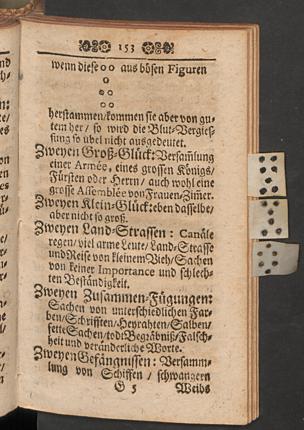 153
wenn diese aus bösen Figuren
herstammen/kommen sie aber von gu-
tem her/ so wird die Blut-Vergies-
sung so übel nicht ausgedeutet.
Zweyen Groß-Glück: Versam̃lung
einer Armée, eines grossen Königs/
Fürsten oder Herrn/ auch wohl eine
grosse Assemblée von Frauen-Zim̃er.
Zweyen Klein-Glück: eben dasselbe/
aber nicht so groß.
Zweyen Land-Strassen: Canäle
regen/ viel arme Leute/ Land-Strasse
und Reise von kleinem Vieh/ Sachen
von keiner Importance und schlech-
ten Beständigkeit.
Zweyen Zusammen-Fügungen:
Sachen von unterschiedlichen Far-
ben/ Schrifften/ Heyrahten/ Salben/
fette Sachen/ todt Begräbniß/ Falsch-
heit und veränderliche Worte.
Zweyen Gefängnissen: Versamm-
lung von Schiffen/ schwangern
G 5 Weibs